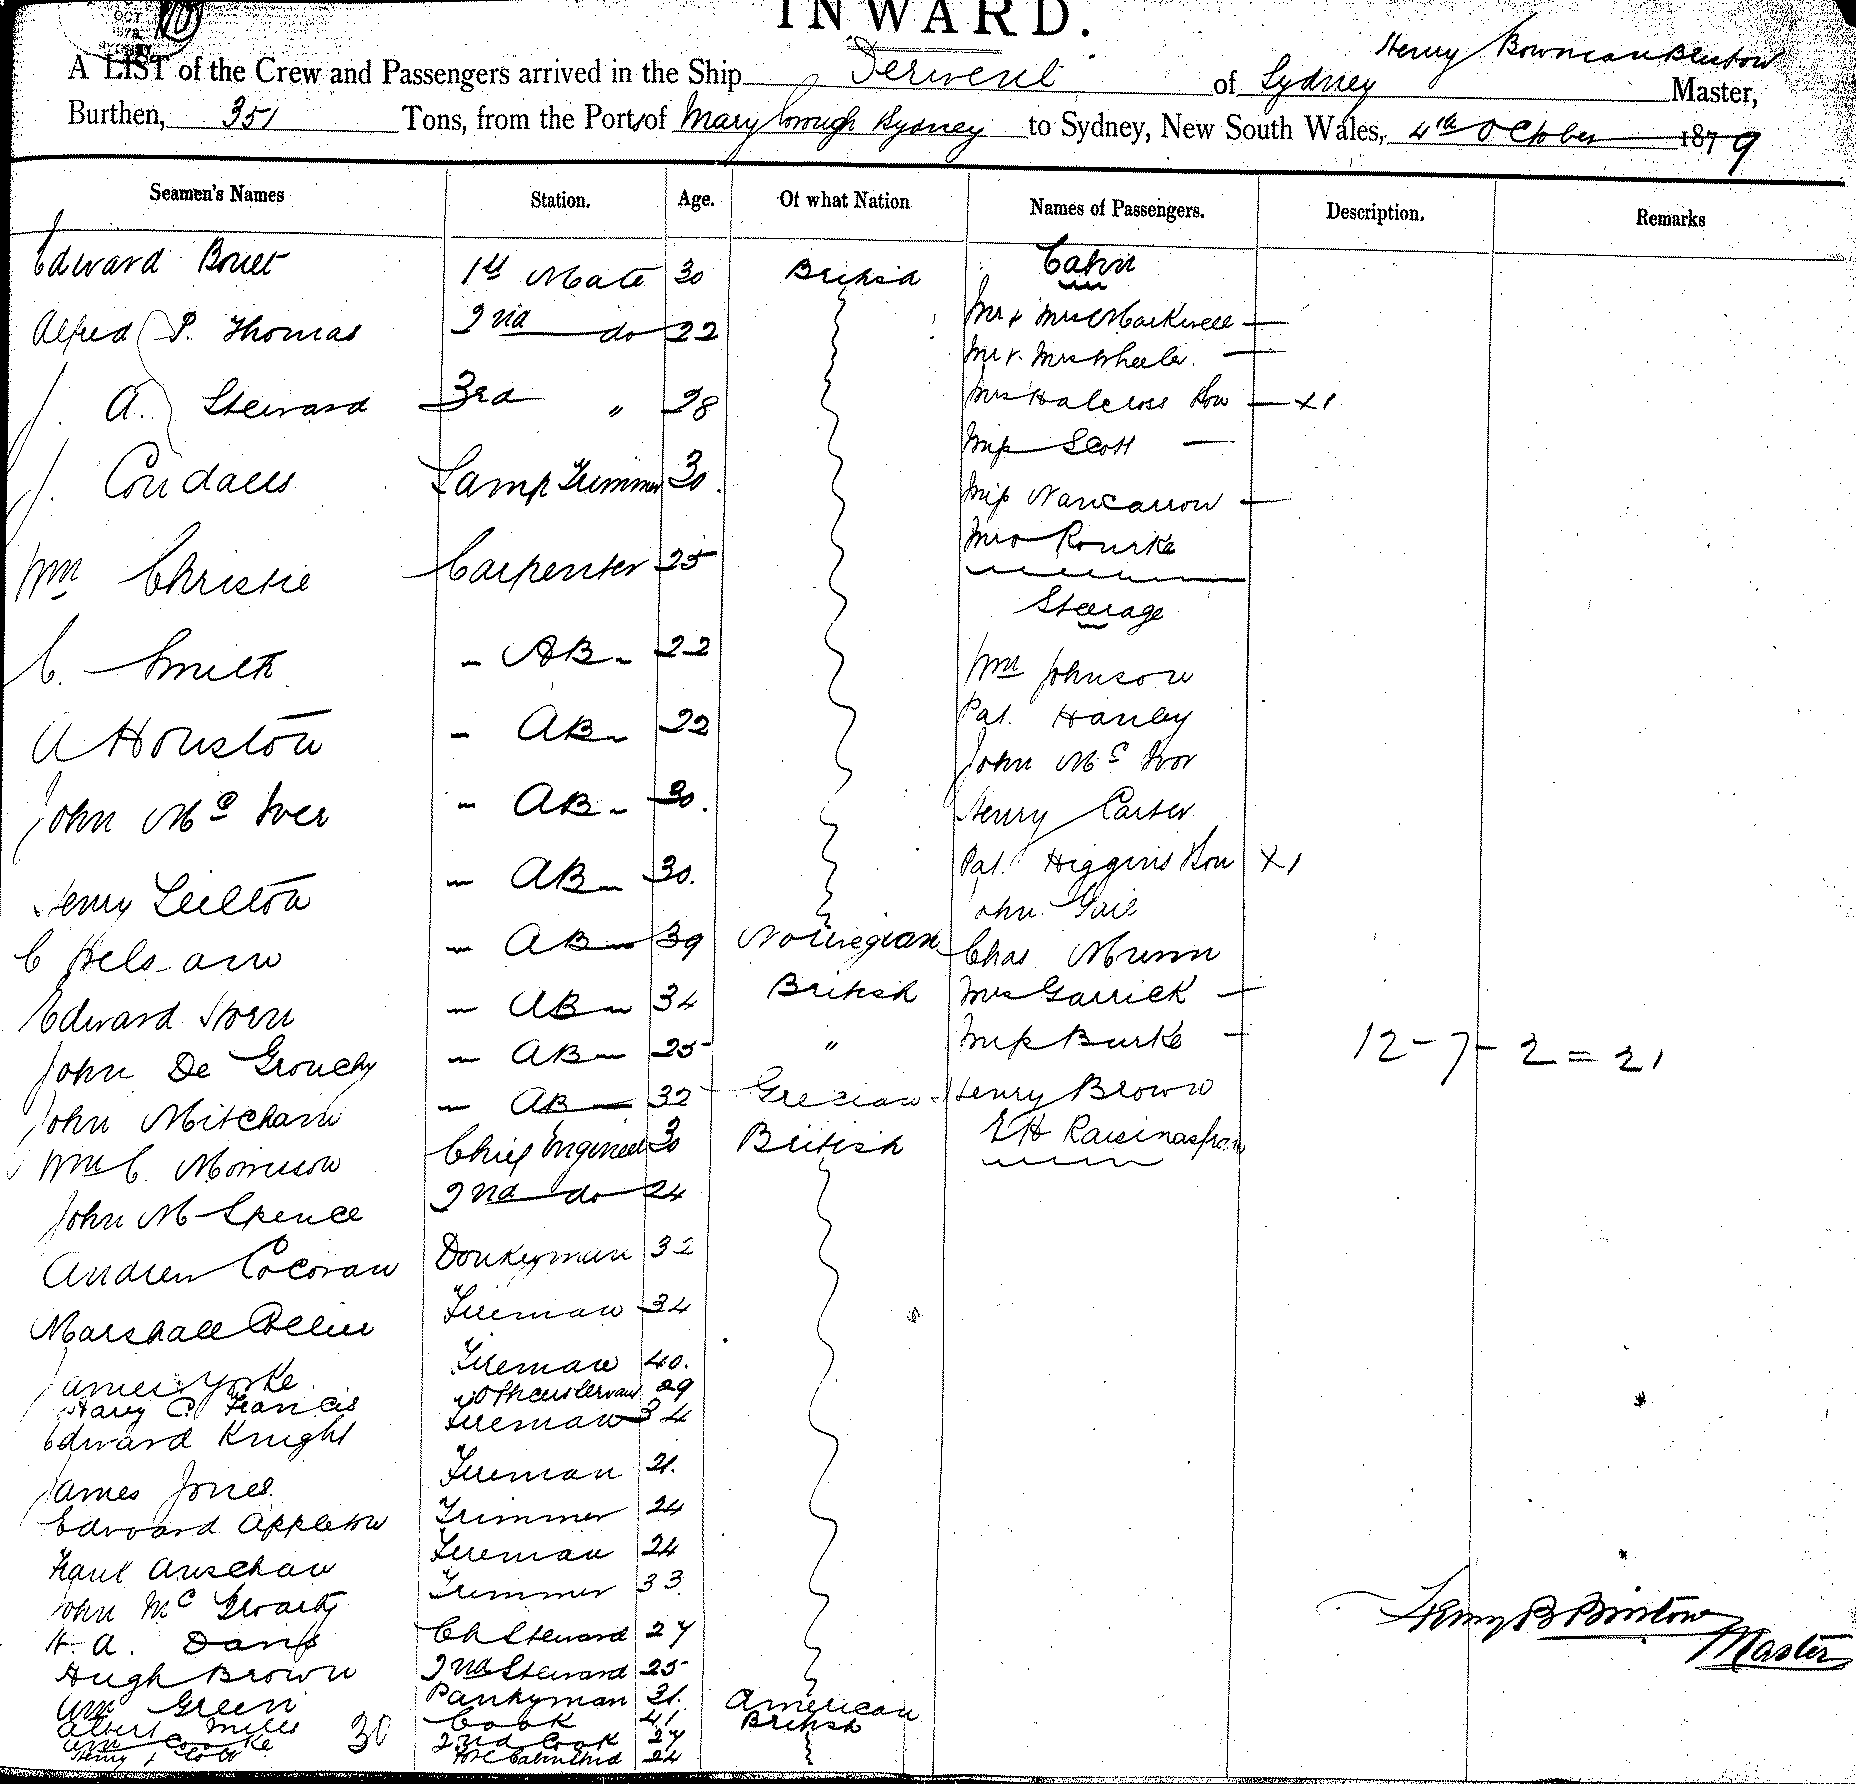 INWARD.
A LIST of the Crew and Passengers arrived in the Ship Derwent of Sydney Henry Bowman Master,
Burthen, 351 Tons, from the Port of Maryborough Sydney to Sydney, New South Wales, 4th October 1879
Seamen's Names Station. Age. Of what Nation Names of Passengers. Description. Remarks
Cabin
Edward 1st Mate 30 British
Mr & Mrs Markwell —
Alfred P. Thomas 2nd do 22
Mr & Mrs Wheeler —
J. A. Steward 3rd " 28 Mrs Halcross Son — X1
Miss Scott —
J. Lamp Trimmer 30
Miss Nancarrow —
Mrs Rourke
Wm Christie Carpenter 25
Steerage
C. Smith - AB - 22
Wm Johnson
A Houston - AB - 22 Pat. Hanby
John Mc Ivor
John Mc Iver - AB - 30.
Henry Carter
Henry - AB - 30. Pat. Higgins Son X1
John
C - AB - 39 Norwegian Chas Munn
Edward - AB - 34 British Mrs Garrick —
John De Grouchy - AB - 25 " Miss Burke — 12 - 7 - 2 = 21
John Mitcham - AB - 32 Grecian Henry Brown
Wm C. Morrison Chief Engineer 30 British E H
John M Spence 2nd do 24
Andrew Cocoran Donkeyman 32
Marshall Fireman 34
James Yorke Fireman 40.
Harry C Francis Officers Servant 29
Edward Knight Fireman 34
James Jones Fireman 21.
Edward Appleton Trimmer 24
Fireman 24
John Mc Trimmer 33
H. A. Davis Ch Steward 27
Henry B
Master
Hugh Brown 2nd Steward 25
Wm Green Pantryman 21. American
Albert Mills Cook 41 British
30
Wm Cooke 2nd Cook 27
Henry 24